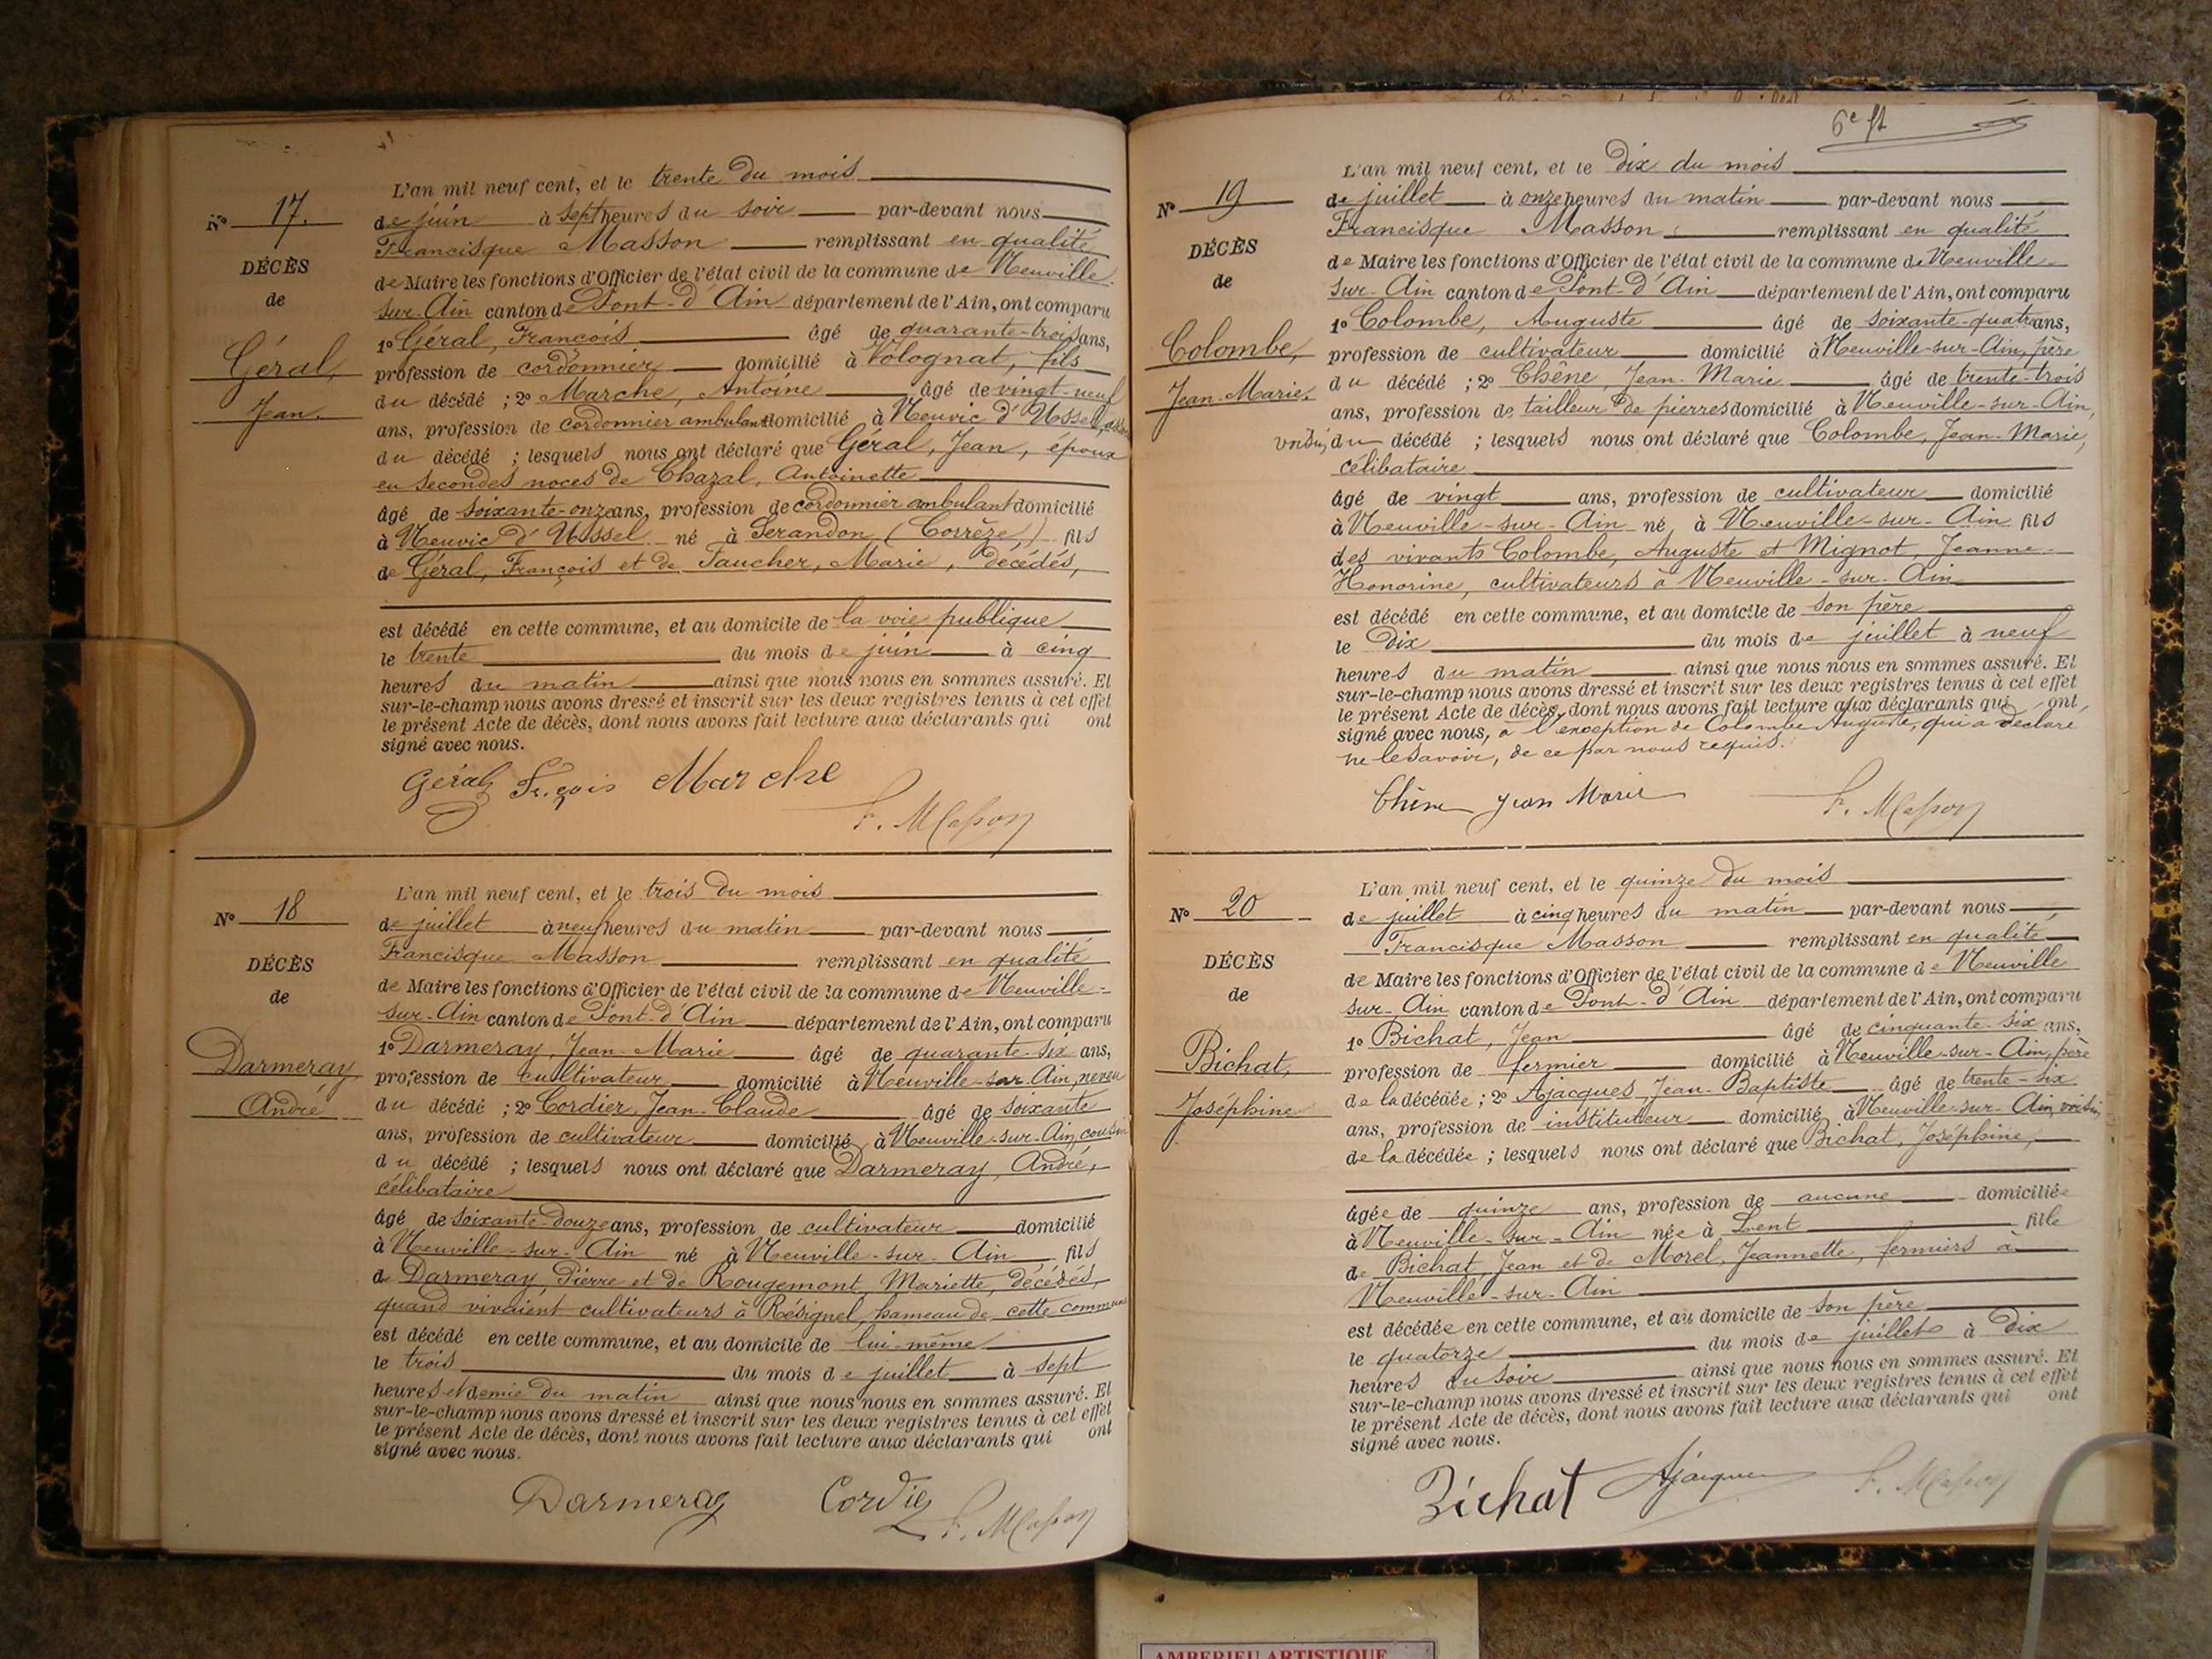 N° 17.
DÉCÈS
de
Géral,
Jean.
L'an mil neuf cent, et le trente du mois
de juin à sept heures du soir par-devant nous
Francisque Masson remplissant en qualité
de Maire les fonctions d'Officier de l'état civil de la commune de Neuville-
sur-Ain canton de Pont-d'Ain département de l'Ain, ont comparu
1° Géral, François âgé de quarante-trois ans,
profession de cordonnier domicilié à Volognat, fils
du décédé ; 2° Marche, Antoine âgé de vingt-neuf
ans, profession de cordonnier ambulant domicilié à Neuvic d'Ussel,
du décédé ; lesquels nous ont déclaré que Géral, Jean, époux
en secondes noces de Chazal, Antoinette
âgé de soixante-onze ans, profession de cordonnier ambulant domicilié
à Neuvic d'Ussel né à Serandon (Corrèze) fils
de Géral, François et de Faucher, Marie, décédés,
est décédé en cette commune, et au domicile de la voie publique
le trente du mois de juin à cinq
heures du matin ainsi que nous nous en sommes assuré. Et
sur-le-champ nous avons dressé et inscrit sur les deux registres tenus à cet effet
le présent Acte de décès, dont nous avons fait lecture aux déclarants qui ont
signé avec nous.
Géral Fr.çois Marche
F. Masson
N° 18
DÉCÈS
de
Darmeray
André
L'an mil neuf cent, et le trois du mois
de juillet à neuf heures du matin par-devant nous
Francisque Masson remplissant en qualité
de Maire les fonctions d'Officier de l'état civil de la commune de Neuville-
sur-Ain canton de Pont-d'Ain département de l'Ain, ont comparu
1° Darmeray, Jean-Marie âgé de quarante-six ans,
profession de cultivateur domicilié à Neuville-sur-Ain, neveu
du décédé ; 2° Cordier, Jean-Claude âgé de soixante
ans, profession de cultivateur domicilié à Neuville-sur-Ain, cousin
du décédé ; lesquels nous ont déclaré que Darmeray, André,
célibataire
âgé de soixante-douze ans, profession de cultivateur domicilié
à Neuville-sur-Ain né à Neuville-sur-Ain fils
de Darmeray, Pierre et de Rougemont, Mariette, décédés,
quand vivaient cultivateurs à Résignel, hameau de cette commune
est décédé en cette commune, et au domicile de lui-même
le trois du mois de juillet à sept
heures et demie du matin ainsi que nous nous en sommes assuré. Et
sur-le-champ nous avons dressé et inscrit sur les deux registres tenus à cet effet
le présent Acte de décès, dont nous avons fait lecture aux déclarants qui ont
signé avec nous.
Darmeray Cordier F. Masson
6e ft
N° 19
DÉCÈS
de
Colombe,
Jean-Marie.
L'an mil neuf cent, et le dix du mois
de juillet à onze heures du matin par-devant nous
Francisque Masson remplissant en qualité
de Maire les fonctions d'Officier de l'état civil de la commune de Neuville-
sur-Ain canton de Pont-d'Ain département de l'Ain, ont comparu
1° Colombe, Auguste âgé de soixante-quatre ans,
profession de cultivateur domicilié à Neuville-sur-Ain, père
du décédé ; 2° Chêne, Jean-Marie âgé de trente-trois
ans, profession de tailleur de pierres domicilié à Neuville-sur-Ain,
voisin, du décédé ; lesquels nous ont déclaré que Colombe, Jean-Marie,
célibataire
âgé de vingt ans, profession de cultivateur domicilié
à Neuville-sur-Ain né à Neuville-sur-Ain fils
des vivants Colombe, Auguste et Mignot, Jeanne-
Honorine, cultivateurs à Neuville-sur-Ain
est décédé en cette commune, et au domicile de son père
le dix du mois de juillet à neuf
heures du matin ainsi que nous nous en sommes assuré. Et
sur-le-champ nous avons dressé et inscrit sur les deux registres tenus à cet effet
le présent Acte de décès, dont nous avons fait lecture aux déclarants qui ont
signé avec nous, à l'exception de Colombe Auguste, qui a déclaré
ne le savoir, de ce par nous requis.
Chêne Jean Marie F. Masson
N° 20
DÉCÈS
de
Bichat,
Joséphine
L'an mil neuf cent, et le quinze du mois
de juillet à cinq heures du matin par-devant nous
Francisque Masson remplissant en qualité
de Maire les fonctions d'Officier de l'état civil de la commune de Neuville
sur-Ain canton de Pont-d'Ain département de l'Ain, ont comparu
1° Bichat, Jean âgé de cinquante-six ans,
profession de fermier domicilié à Neuville-sur-Ain, père
de la décédée ; 2° Ajacques, Jean-Baptiste âgé de trente-six
ans, profession de instituteur domicilié à Neuville-sur-Ain, voisin,
de la décédée ; lesquels nous ont déclaré que Bichat, Joséphine,
âgée de quinze ans, profession de aucune domiciliée
à Neuville-sur-Ain née à Lent fille
de Bichat, Jean et de Morel, Jeannette, fermiers à
Neuville-sur-Ain
est décédée en cette commune, et au domicile de son père
le quatorze du mois de juillet à dix
heures du soir ainsi que nous nous en sommes assuré. Et
sur-le-champ nous avons dressé et inscrit sur les deux registres tenus à cet effet
le présent Acte de décès, dont nous avons fait lecture aux déclarants qui ont
signé avec nous.
Bichat Ajacques F. Masson
AMBERIEU ARTISTIQUE